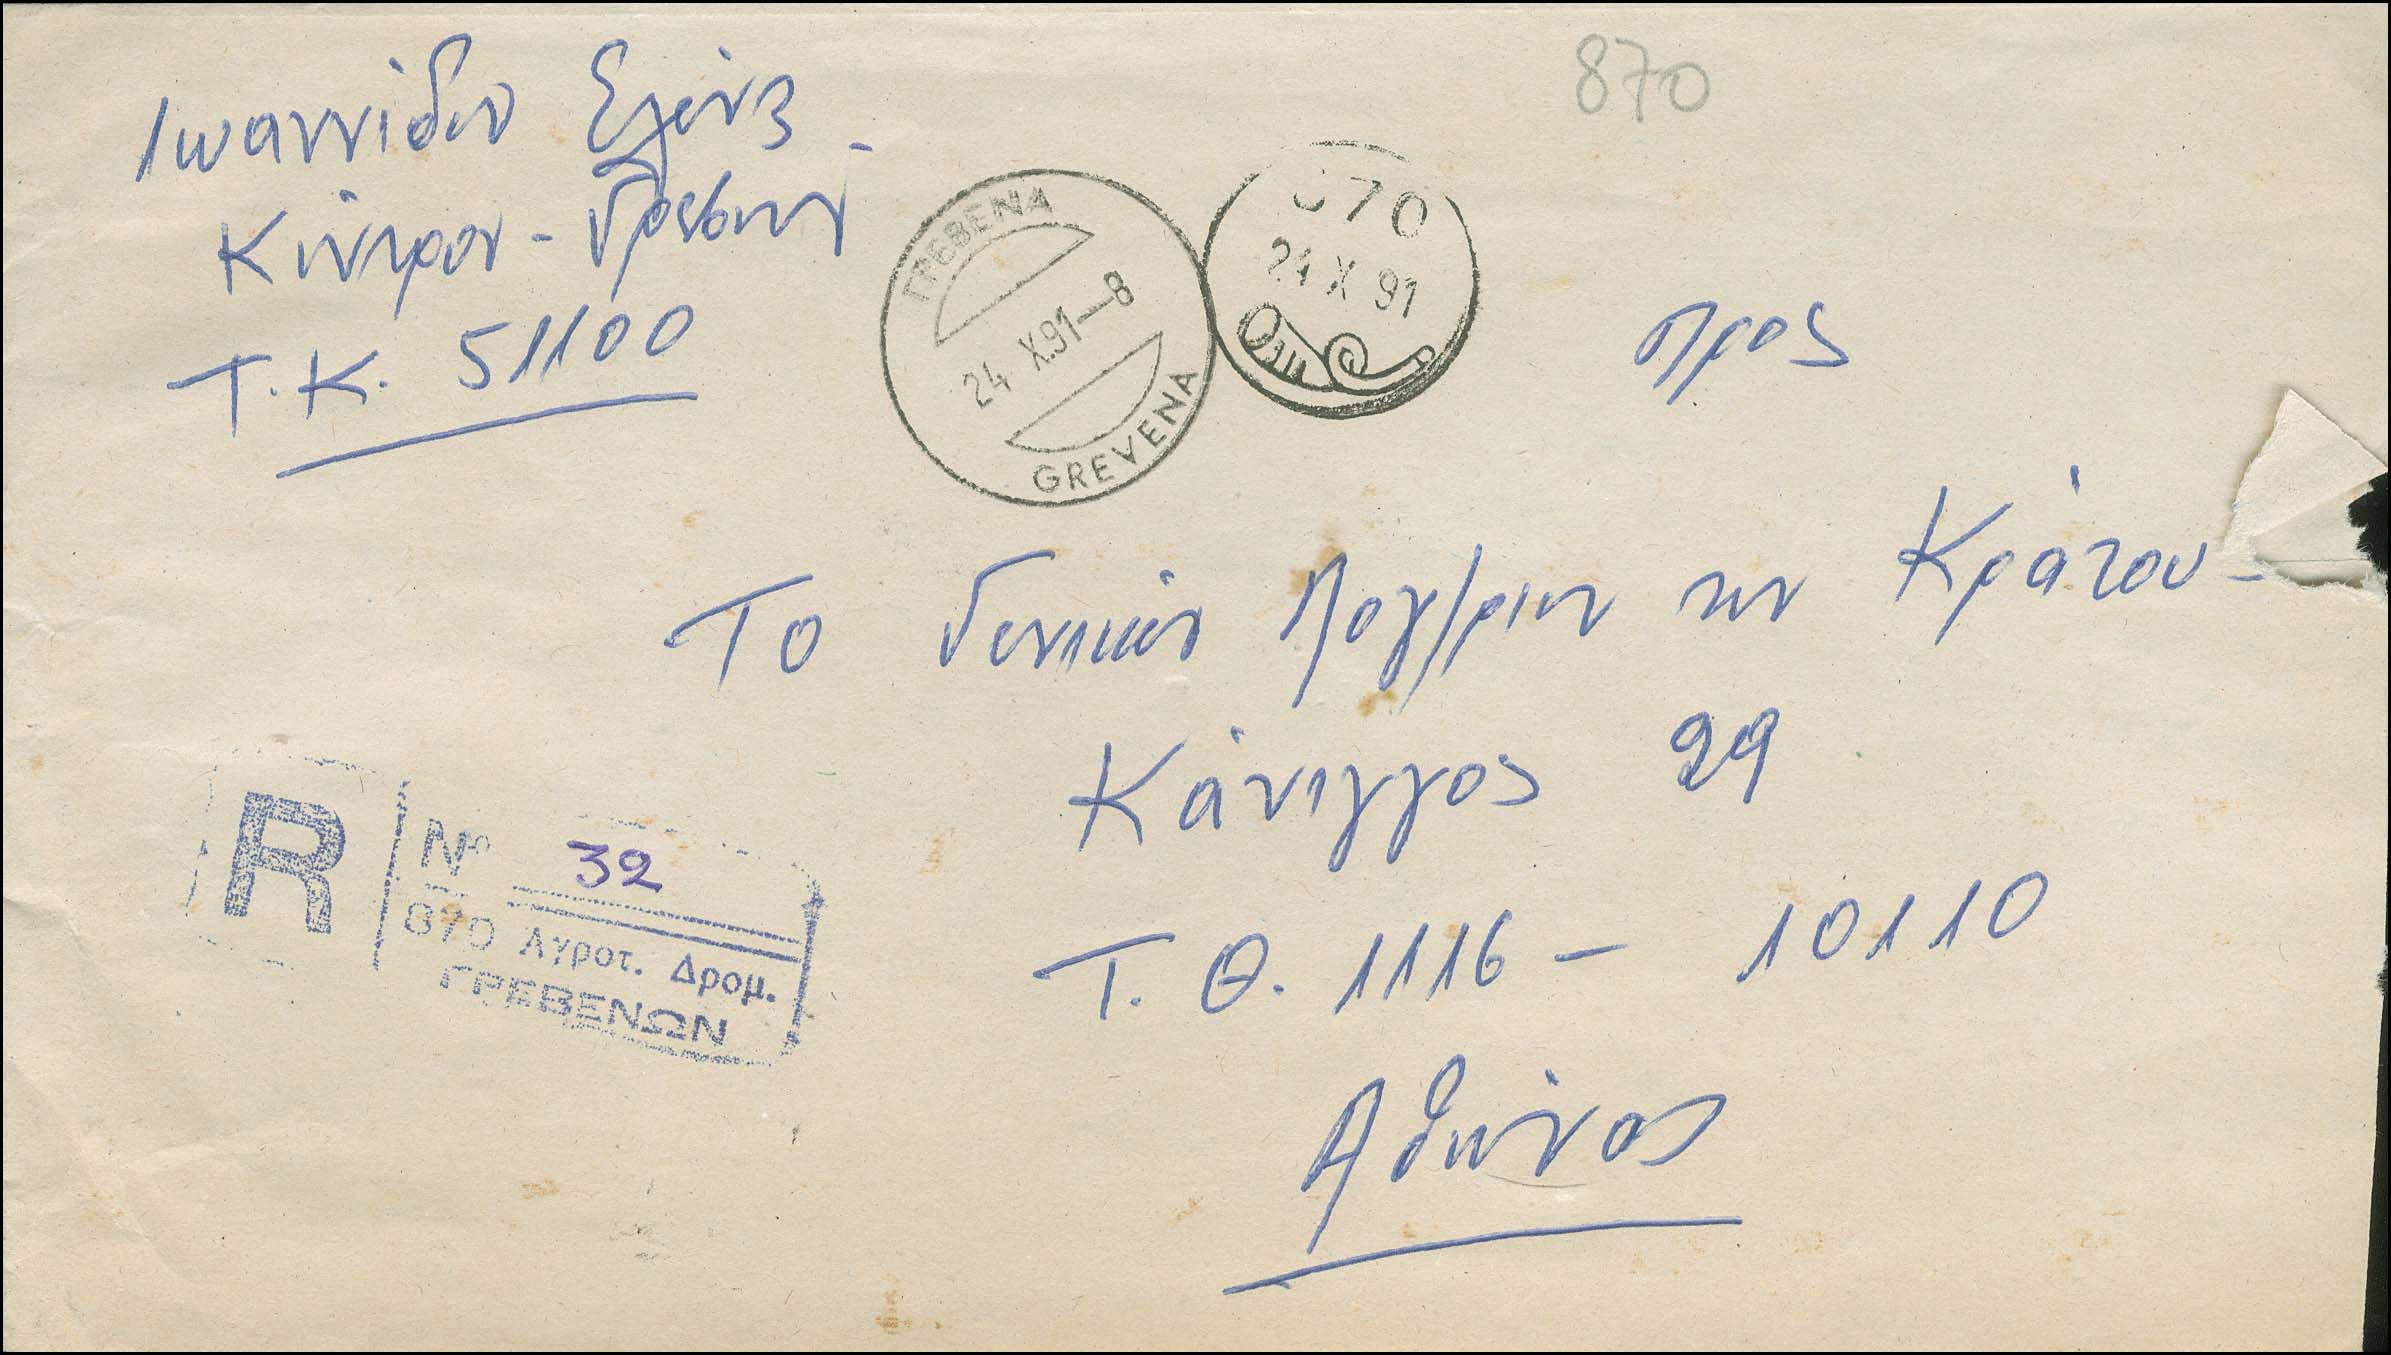 870
Ιωαννίδου Ελένη
Κέντρον - Γρεβενά
Τ.Κ. 51100
ΓΡΕΒΕΝΑ
24 X.91-8
GREVENA
870
24 X 91
προς
Το Γενικόν Λογ/ριον του Κράτου-
Κάνιγγος 29
Τ.Θ. 1116 - 10110
Αθήνας
R
Nº 32
870 Αγροτ. Δρομ.
ΓΡΕΒΕΝΩΝ